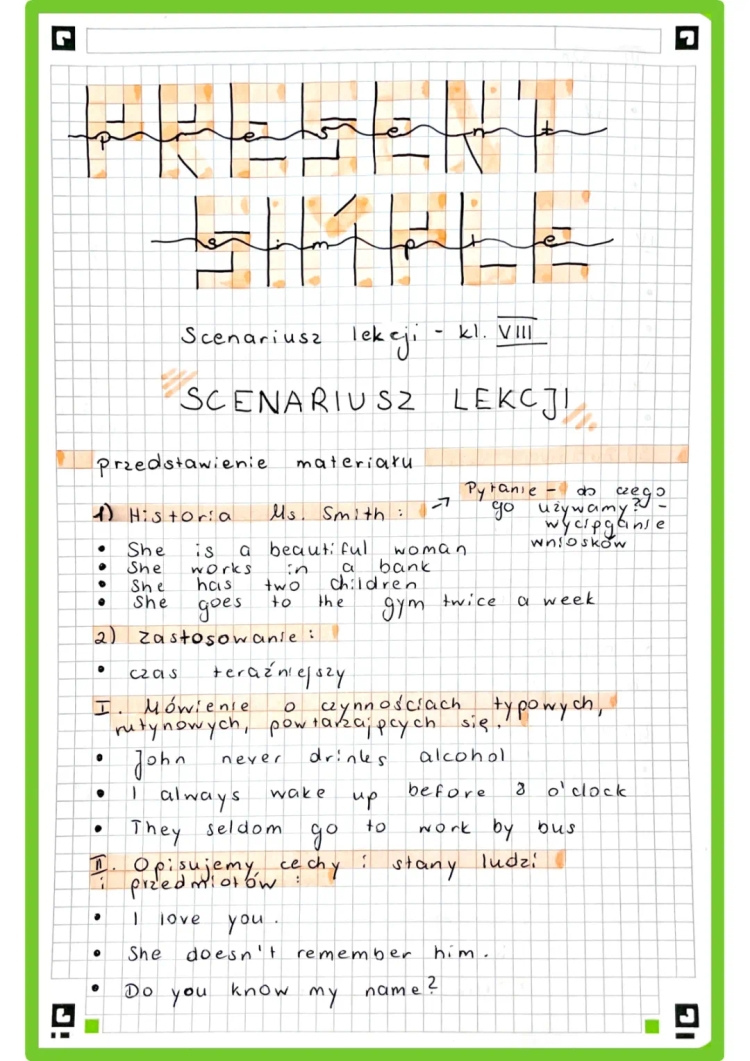 PRESENT
present
SIMPLE
simple
Scenariusz lekcji - kl. VIII
SCENARIUSZ LEKCJI
przedstawienie materiału
Pytanie - do czego
go używamy? -
wyciąganie
wniosków
1) Historia Ms. Smith :
• She is a beautiful woman
• She works in a bank
• She has two children
• She goes to the gym twice a week
2) Zastosowanie :
• czas teraźniejszy
I. Mówienie o czynnościach typowych,
rutynowych, powtarzających się.
• John never drinks alcohol
• I always wake up before 8 o'clock
• They seldom go to work by bus
II. Opisujemy cechy i stany ludzi
i przedmiotów :
• I love you.
• She doesn't remember him.
• Do you know my name?